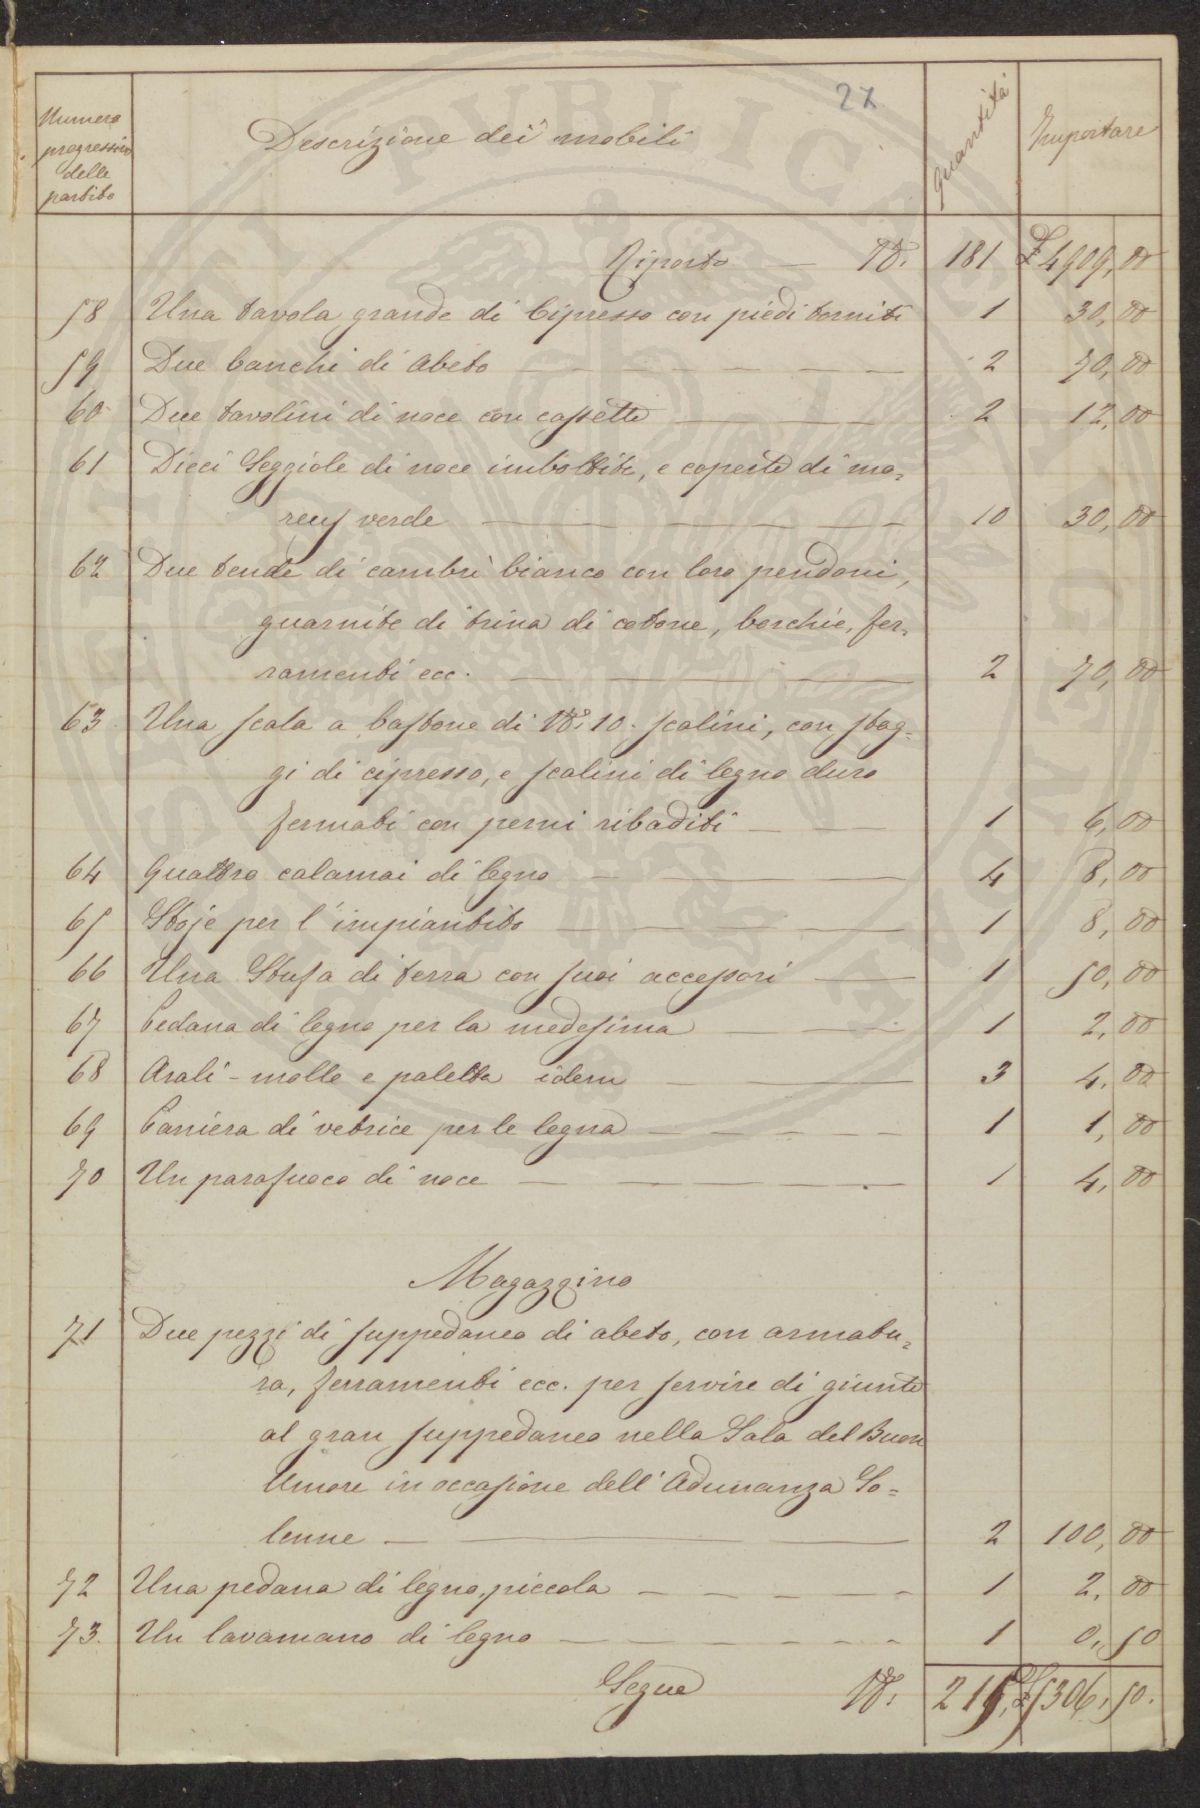 27
Numero progressivo delle partite | Descrizione dei mobili | Quantità | Importare
Riporto — N.° 181 £ 4909,00
58 Una tavola grande di Cipresso con piedi torniti 1 30,00
59 Due banchi di abeto 2 70,00
60 Due tavolini di noce con cassetto 2 12,00
61 Dieci Seggiole di noce imbottite, e coperte di ma-
recy verde 10 30,00
62 Due tende di cambrì bianco con loro pendoni,
guarnite di trina di cotone, borchie, fer-
ramenti ecc. 2 70,00
63 Una scala a bastone di N.° 10. scalini, con stag-
gi di cipresso, e scalini di legno duro
fermati con perni ribaditi 1 6,00
64 Quattro calamai di legno 4 8,00
65 Stoje per l'impiantito 1 8,00
66 Una Stufa di terra con suoi accessori 1 50,00
67 Pedana di legno per la medesima 1 2,00
68 Arali - molle e paletta idem 3 4,00
69 Paniera di vetrice per le legna 1 1,00
70 Un parafuoco di noce 1 4,00
Magazzino
71 Due pezzi di suppedaneo di abeto, con armatu-
ra, ferramenti ecc. per servire di giunte
al gran suppedaneo nella Sala del Buon
Umore in occasione dell'Adunanza So-
lenne 2 100,00
72 Una pedana di legno, piccola 1 2,00
73. Un lavamano di legno 1 0,50
Segue N.° 215, £ 5306,50.
PUBLICAE